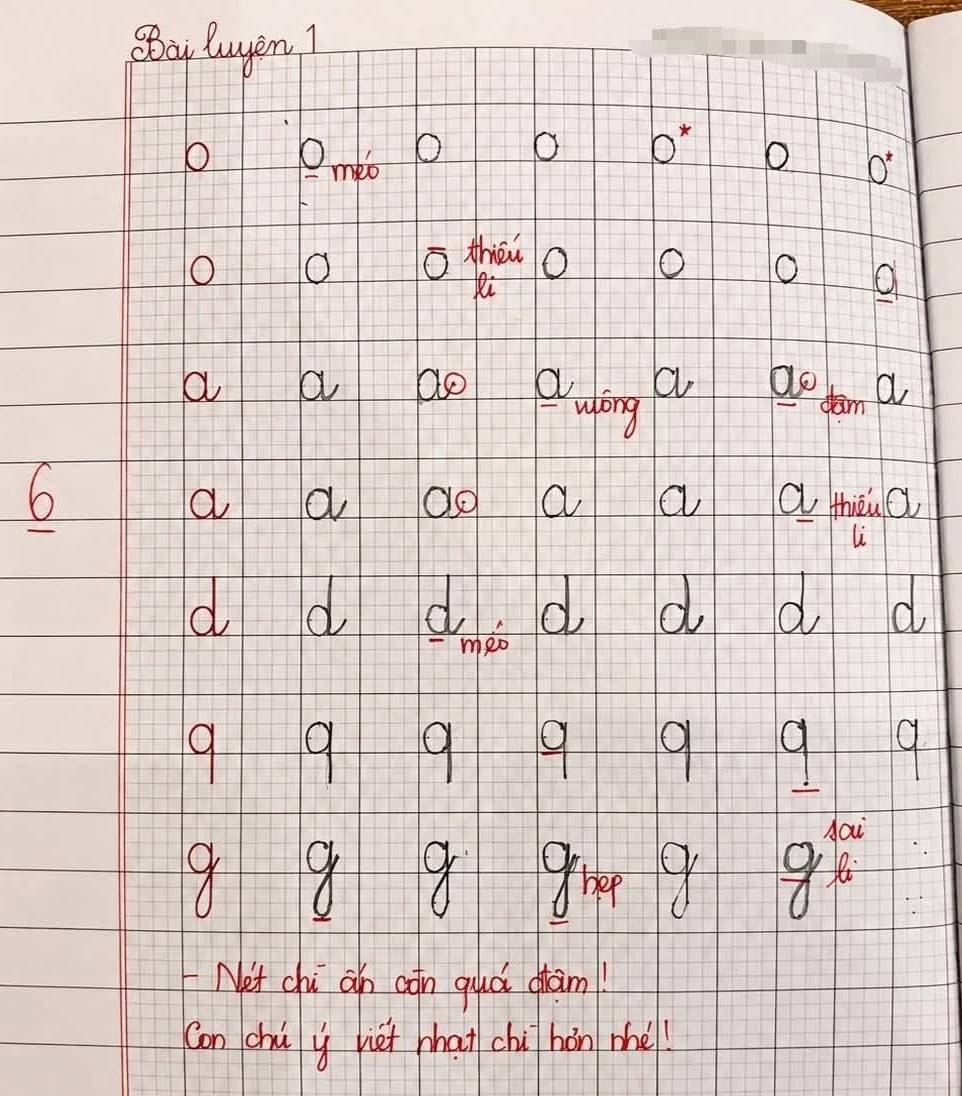 Bài luyện 1
o o méo o o o* o o*
o o o thiếu o o o o
li
a a ao a vuông a ao đậm a
6 a a ao a a a thiếu a
li
d d d méo d d d d
q q q q q q q
g g g g hẹp g g sai
li
- Nét chì ấn còn quá đậm!
Con chú ý viết nhạt chì hơn nhé!